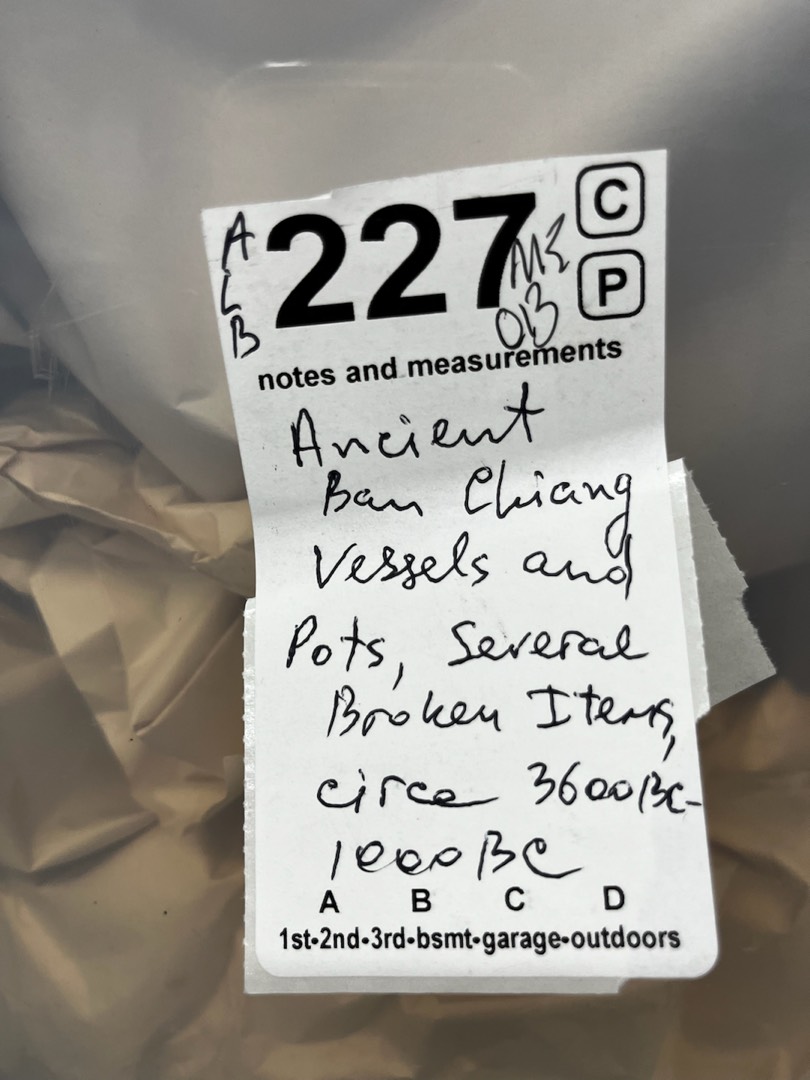 A
L
B
227
M2
OB
C
P
notes and measurements
Ancient
Ban Chiang
Vessels and
Pots, Several
Broken Items,
circa 3600BC-
1000BC
A B C D
1st-2nd-3rd-bsmt-garage-outdoors